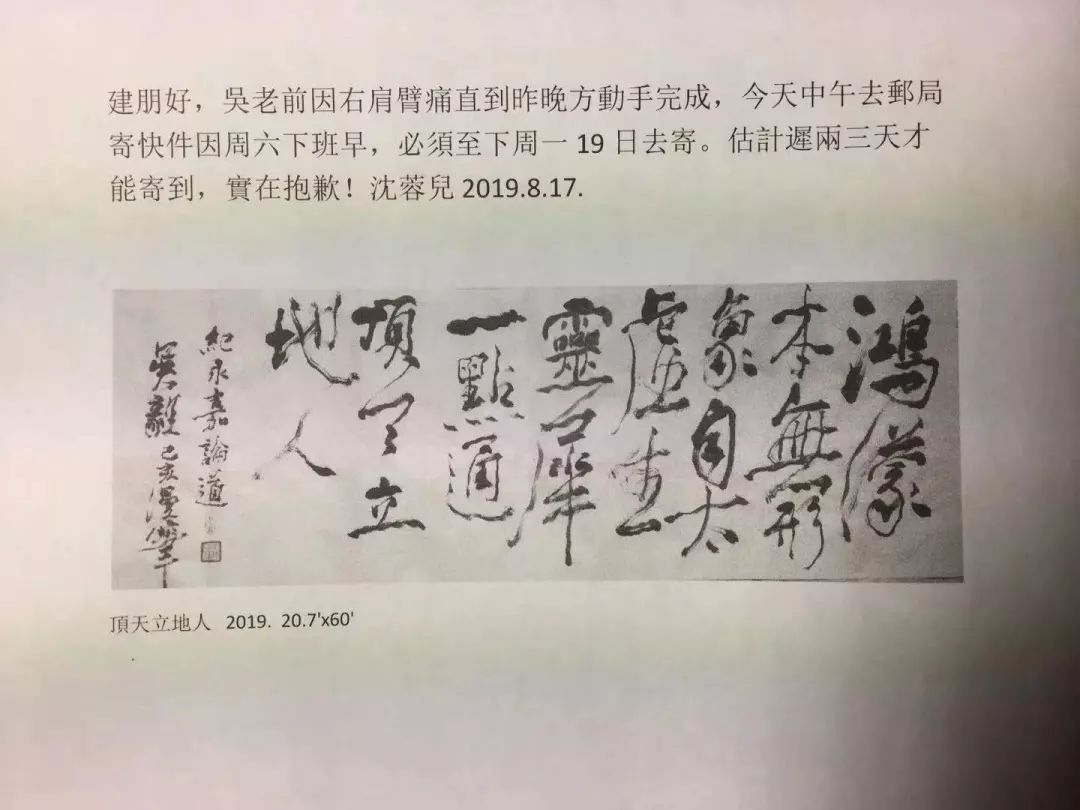 建朋好，吳老前因右肩臂痛直到昨晚方動手完成，今天中午去郵局
寄快件因周六下班早，必須至下周一 19 日去寄。估計遲兩三天才
能寄到，實在抱歉！沈蓉兒 2019.8.17.
鴻濛
本無形
象自太
虛生
靈犀
一點通
頂天立
地人
紀永嘉論道
吳毅己亥漫筆
頂天立地人 2019. 20.7'x60'